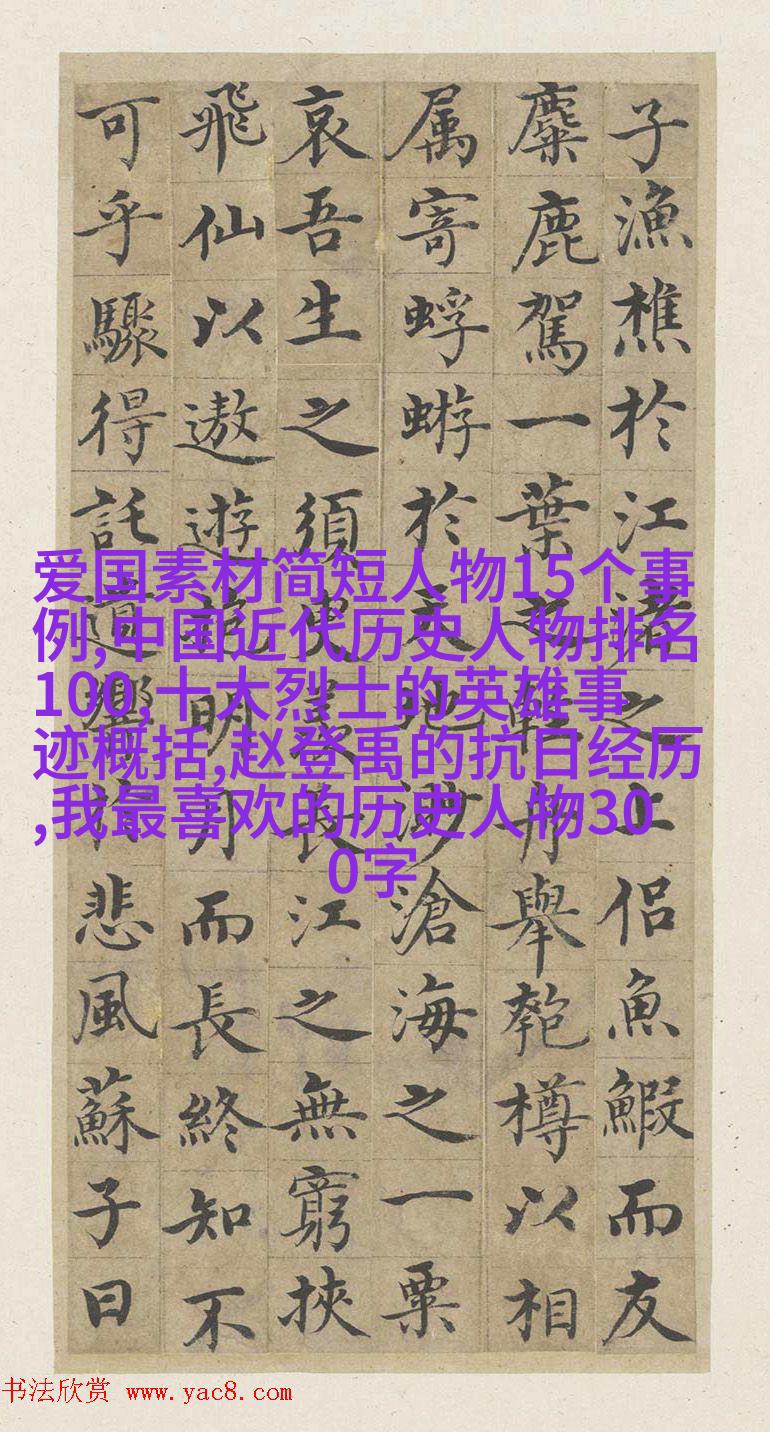 子漁樵於江渚之上侣魚鰕而友
麋鹿駕一葉之輕舟舉匏樽以相
属寄蜉蝣於天地渺滄海之一粟
哀吾生之須臾羨長江之無窮挾
飛仙以遨遊抱明月而長終知不
可乎驟得託遺響於悲風蘇子曰
爱国素材简短人物15个事
例,中国近代历史人物排名
100,十大烈士的英雄事
迹概括,赵登禹的抗日经历
,我最喜欢的历史人物30
0字
书法欣赏 www.yac8.com